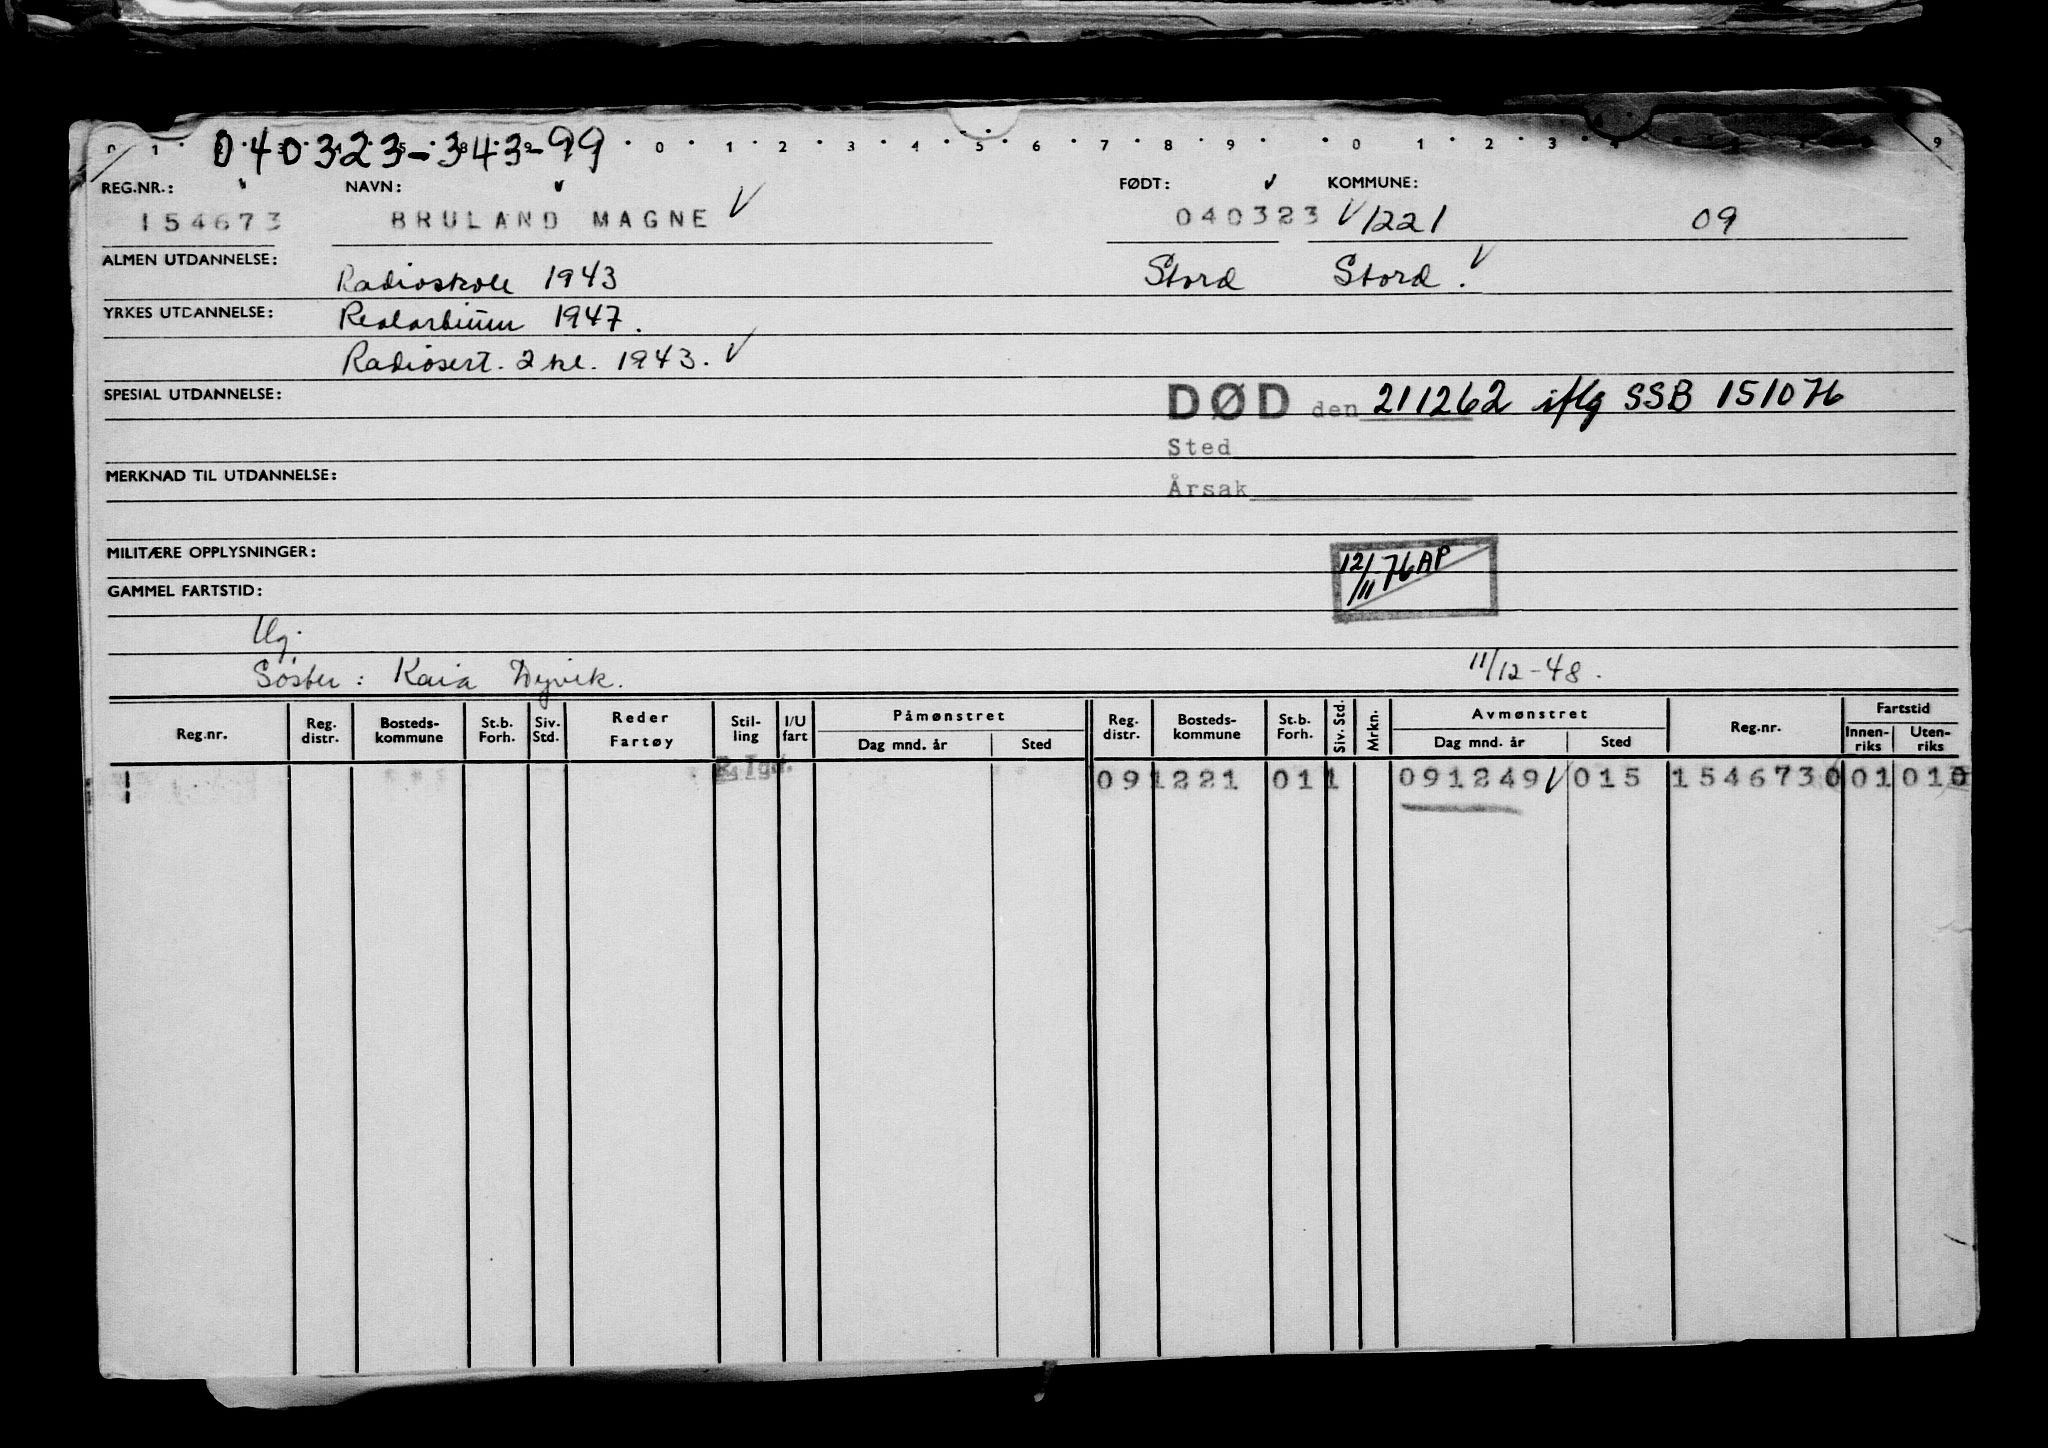 040323-343-99
0 1 0 1 2 3 4 5 6 7 8 9 0 1 2 3 9
REG.NR.: NAVN: FØDT: KOMMUNE:
154673 BRULAND MAGNE 040323 1221 09
ALMEN UTDANNELSE: Radioskole 1943 Stord Stord.
YRKES UTDANNELSE: Realartium 1947.
Radiosert. 2 kl. 1943.
SPESIAL UTDANNELSE: DØD den 211262 iflg SSB 151076
Sted
MERKNAD TIL UTDANNELSE: Årsak
MILITÆRE OPPLYSNINGER: 12/11 76 AP
GAMMEL FARTSTID:
Ug.
Søster: Kaia Dyvik. 11/12-48.
Reg.nr. Reg. distr. Bosteds- kommune St.b. Forh. Siv. Std. Reder Fartøy Stil- ling I/U fart Påmønstret Dag mnd. år Sted Reg. distr. Bosteds- kommune St.b. Forh. Siv. Std. Mrkn. Avmønstret Dag mnd. år Sted Reg.nr. Fartstid Innen- riks Uten- riks
091221 011 091249 015 1546730 01 010